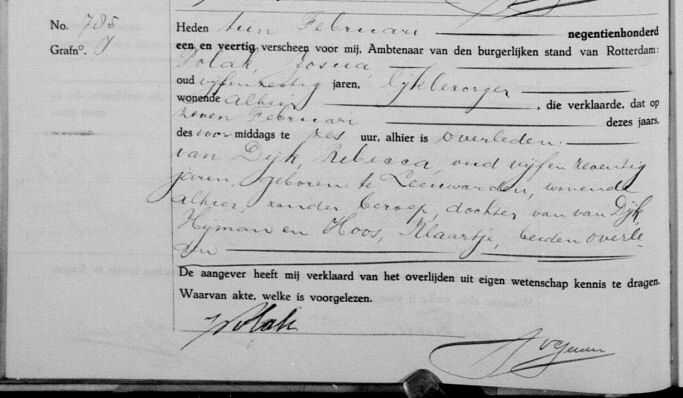 No. 785
Grafno. J
Heden tien Februari negentienhonderd
een en veertig verscheen voor mij, Ambtenaar van den burgerlijken stand van Rotterdam:
Polak, Josua,
oud vijfenzestig jaren, lijkbezorger
wonende alhier, die verklaarde, dat op
zeven Februari dezes jaars,
des voormiddags te zes uur, alhier is overleden:
van Dijk, Rebecca, oud vijfenzeventig
jaren, geboren te Leeuwarden, wonende
alhier, zonder beroep, dochter van van Dijk,
Hyman en Hoos, Klaartje, beiden overle-
den
De aangever heeft mij verklaard van het overlijden uit eigen wetenschap kennis te dragen.
Waarvan akte, welke is voorgelezen.
JPolak